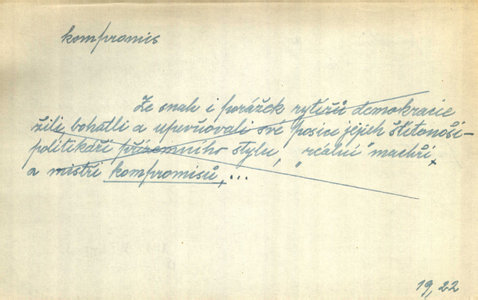 kompromis
Ze snah i porážek rytířů demokracie
žili, bohatli a upevňovali své posice jejich štítonoši-
politikáři přízemního stylu, „reální" machři,
a mistři kompromisů, ...
19, 22